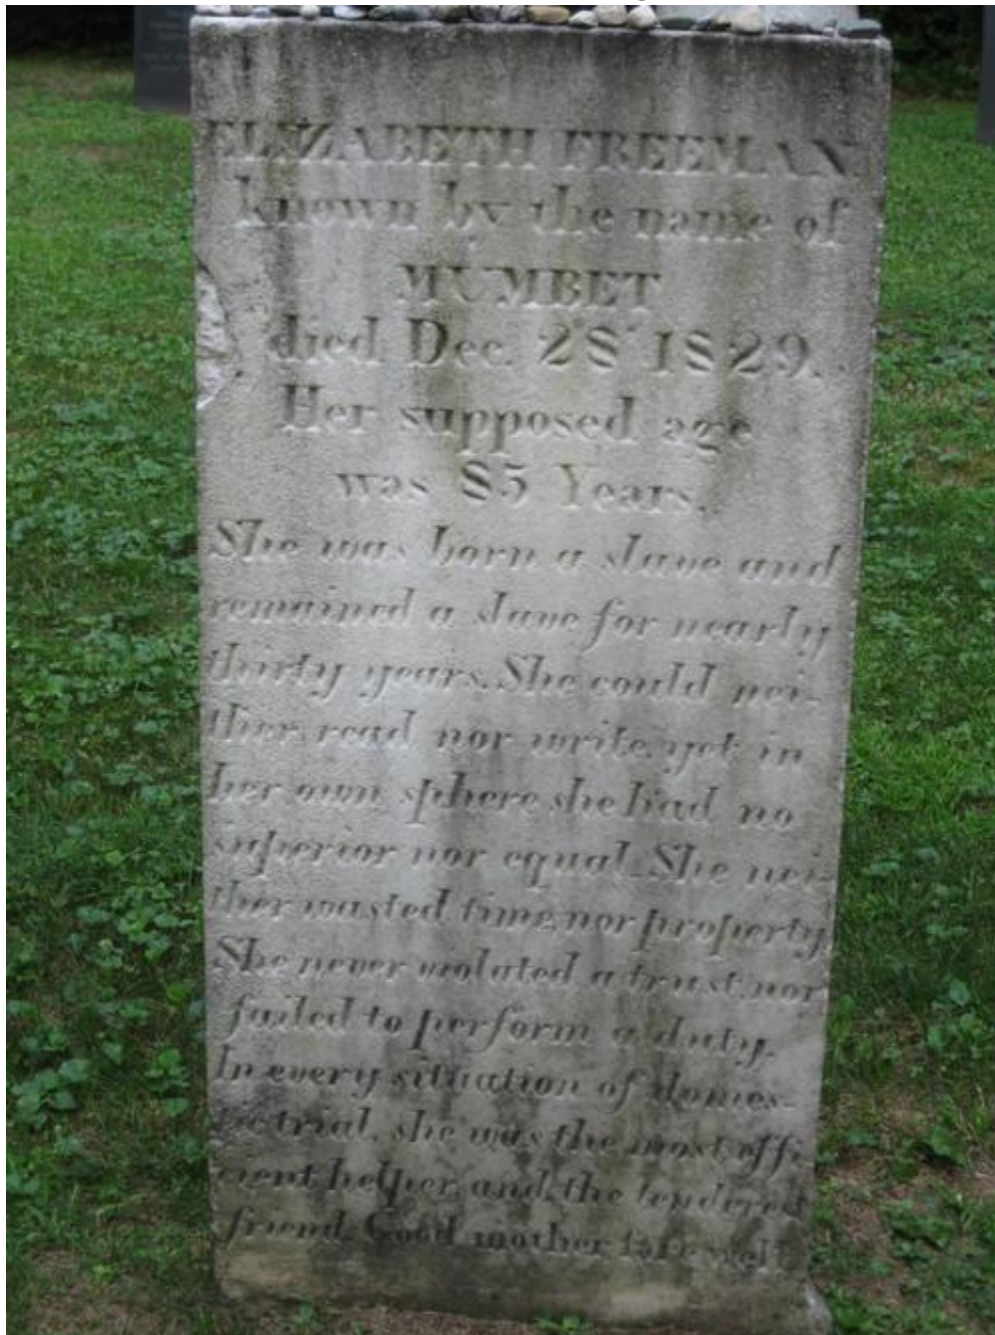 ELIZABETH FREEMAN
known by the name of
MUMBET
died Dec. 28 1829.
Her supposed age
was 85 Years.
She was born a slave and
remained a slave for nearly
thirty years. She could nei-
ther read nor write, yet in
her own sphere she had no
superior nor equal. She nei-
ther wasted time, nor property.
She never violated a trust, nor
failed to perform a duty.
In every situation of domes-
tic trial, she was the most effi-
cient helper, and the tenderest
friend. Good mother farewell.